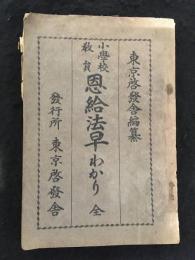 東京啓發舍編纂
小學校
教員
恩給法早わかり 全
發行所 東京啓發舍